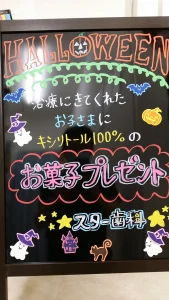 HALLOWEEN
治療にきてくれた
お子さまに
キシリトール100%の
お菓子プレゼント
スター歯科